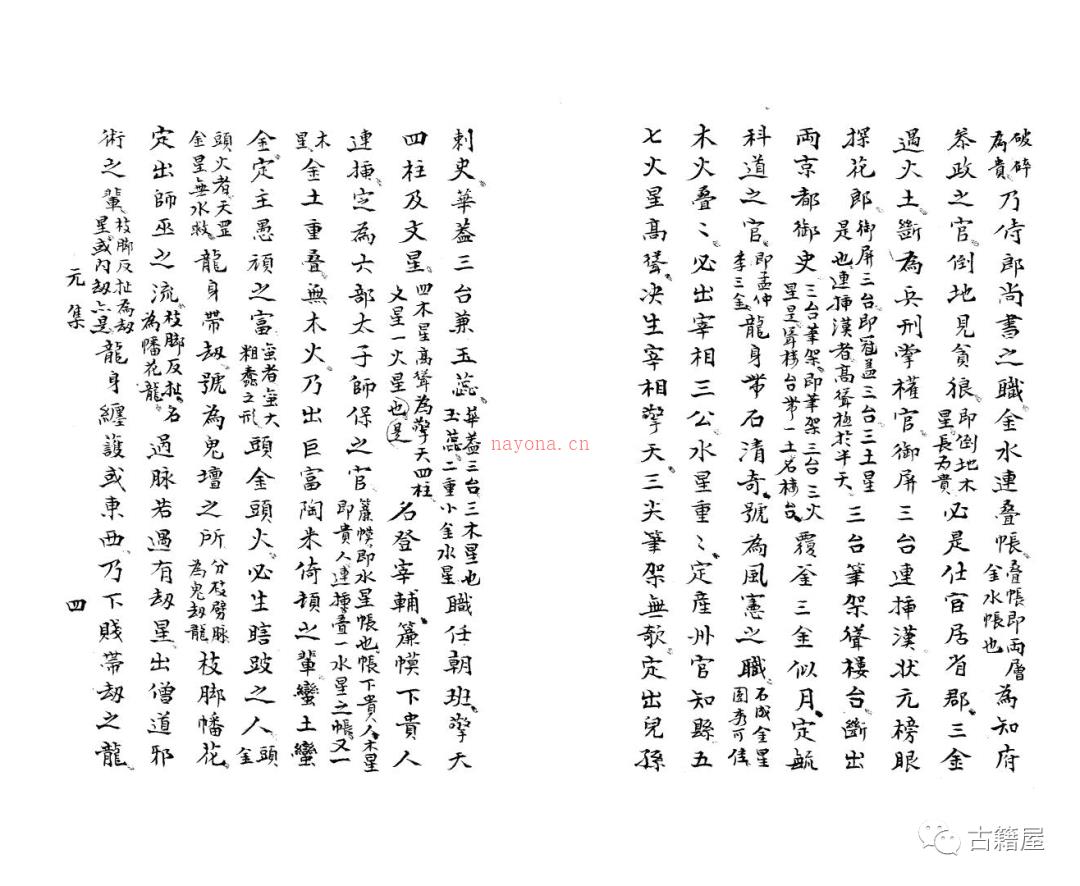 破碎為貴乃侍郎尚書之職金水連叠帳叠帳即两層金水帳也為知府
叅政之官倒地見貪狼即倒地木星長為貴必是仕官居省郡三金
遇火土斷為兵刑掌權官御屏三台連揷漢狀元榜眼
探花郎御屏三台即冠盖三台三土星是也連揷漢者高聳極於半天三台筆架聳樓台斷出
兩京都御史三台筆架即筆架三台三火星是聳楼台帶一土名楼台覆釜三金似月定毓
科道之官即孟仲季三金龍身帶石清奇號為風憲之職石成金星圓秀可佳
木火叠〻必出宰相三公水星重〻定産州官知縣五
七火星高聳决生宰相擎天三尖筆架無欹定出兒孫
刺史華葢三台兼玉蕊華葢三台三木星也玉蕊二重小金水星職任朝班擎天
四柱及文星四木星高聳為擎天四柱文星一火星也是名登宰輔簾幙下貴人
連揷定為六部太子師保之官簾幙即水星帳也帳下貴人木星即貴人連揷叠一水星之帳又一
木星金土重叠無木火乃出巨富陶朱倚頓之輩蠻土蠻
金定主愚頑之富蛮者蛮大粗蠢之形頭金頭火必生瞎跛之人頭金
頭火者天罡金星無水救龍身帶劫號為鬼壇之所分枝劈脉為鬼劫龍枝脚幡花
定出師巫之流枝脚反扯名為幡花龍過脉若遇有劫星出僧道邪
術之輩枝脚反扯為劫星或内劫六是龍身纏護或東西乃下賤帶劫之龍
元集
四
nayona.cn
古籍屋